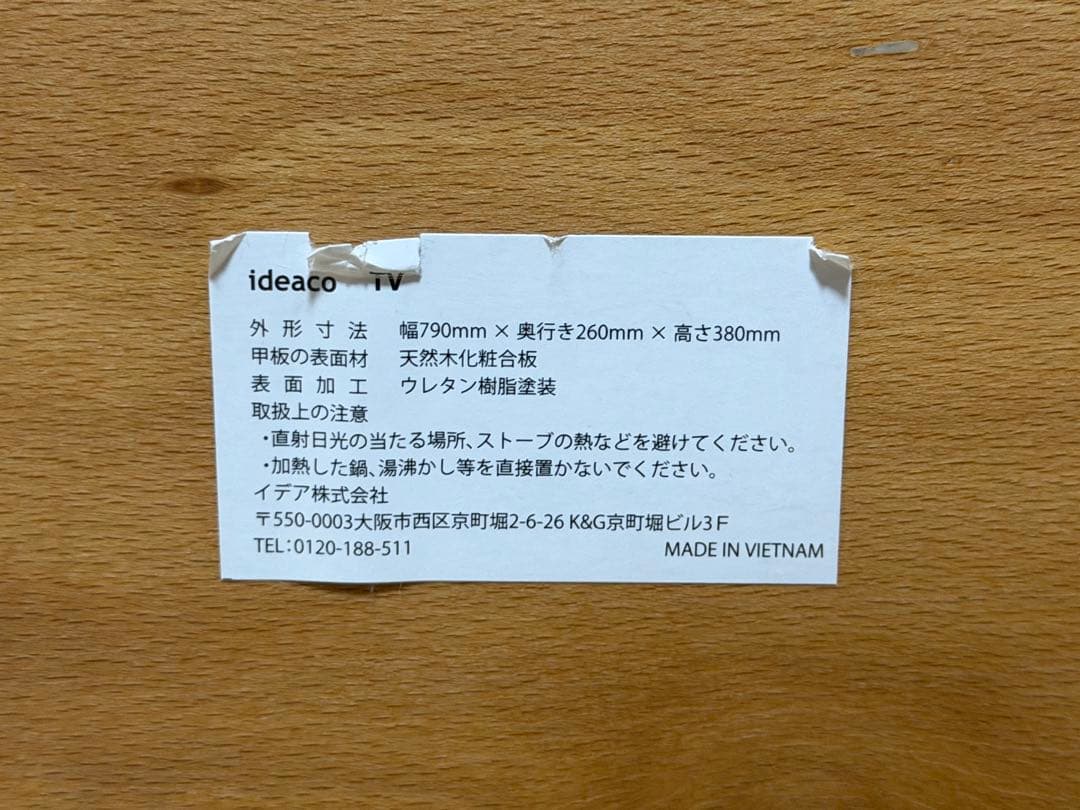 ideaco TV
外形寸法 幅790mm × 奥行き260mm × 高さ380mm
甲板の表面材 天然木化粧合板
表面加工 ウレタン樹脂塗装
取扱上の注意
・直射日光の当たる場所、ストーブの熱などを避けてください。
・加熱した鍋、湯沸かし等を直接置かないでください。
イデア株式会社
〒550-0003大阪市西区京町堀2-6-26 K&G京町堀ビル3F
TEL:0120-188-511 MADE IN VIETNAM